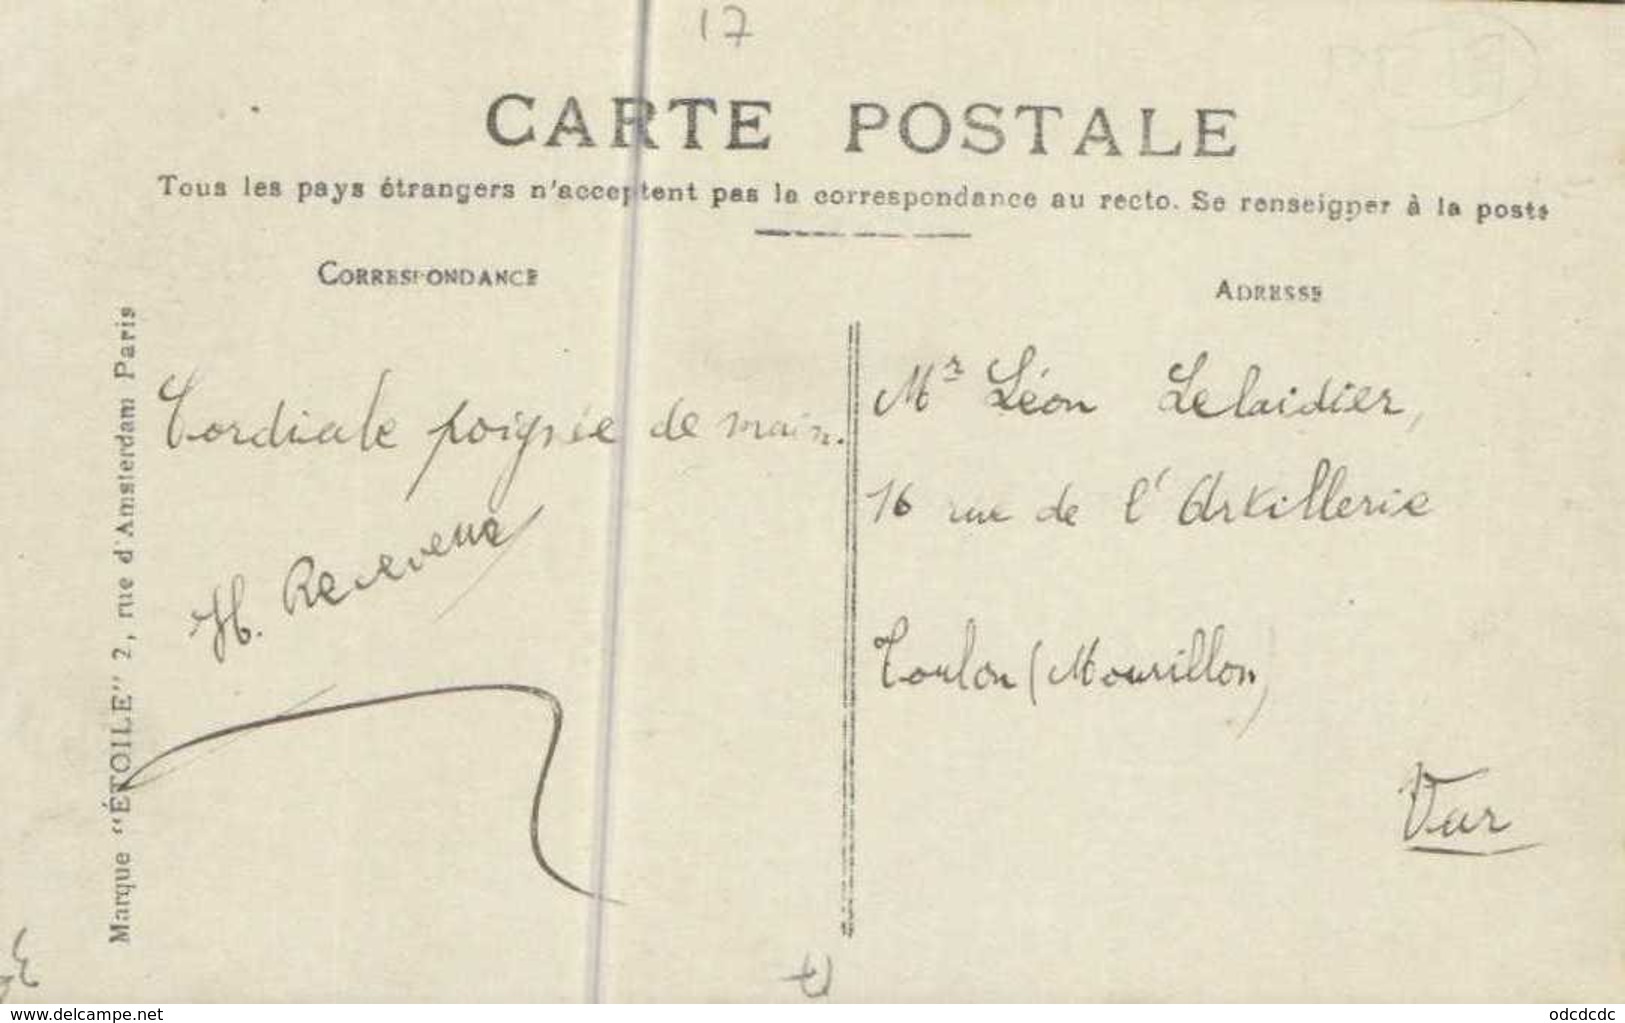 17
CARTE POSTALE
Tous les pays étrangers n'acceptent pas la correspondance au recto. Se renseigner à la poste
CORRESPONDANCE
Cordiale poignée de main.
H. Receveur
Marque "ÉTOILE" 2, rue d'Amsterdam Paris
ADRESSE
Mr Léon Lelaidier,
16 rue de l'Artillerie
Toulon (Mourillon)
Var
www.delcampe.net
odcdcdc